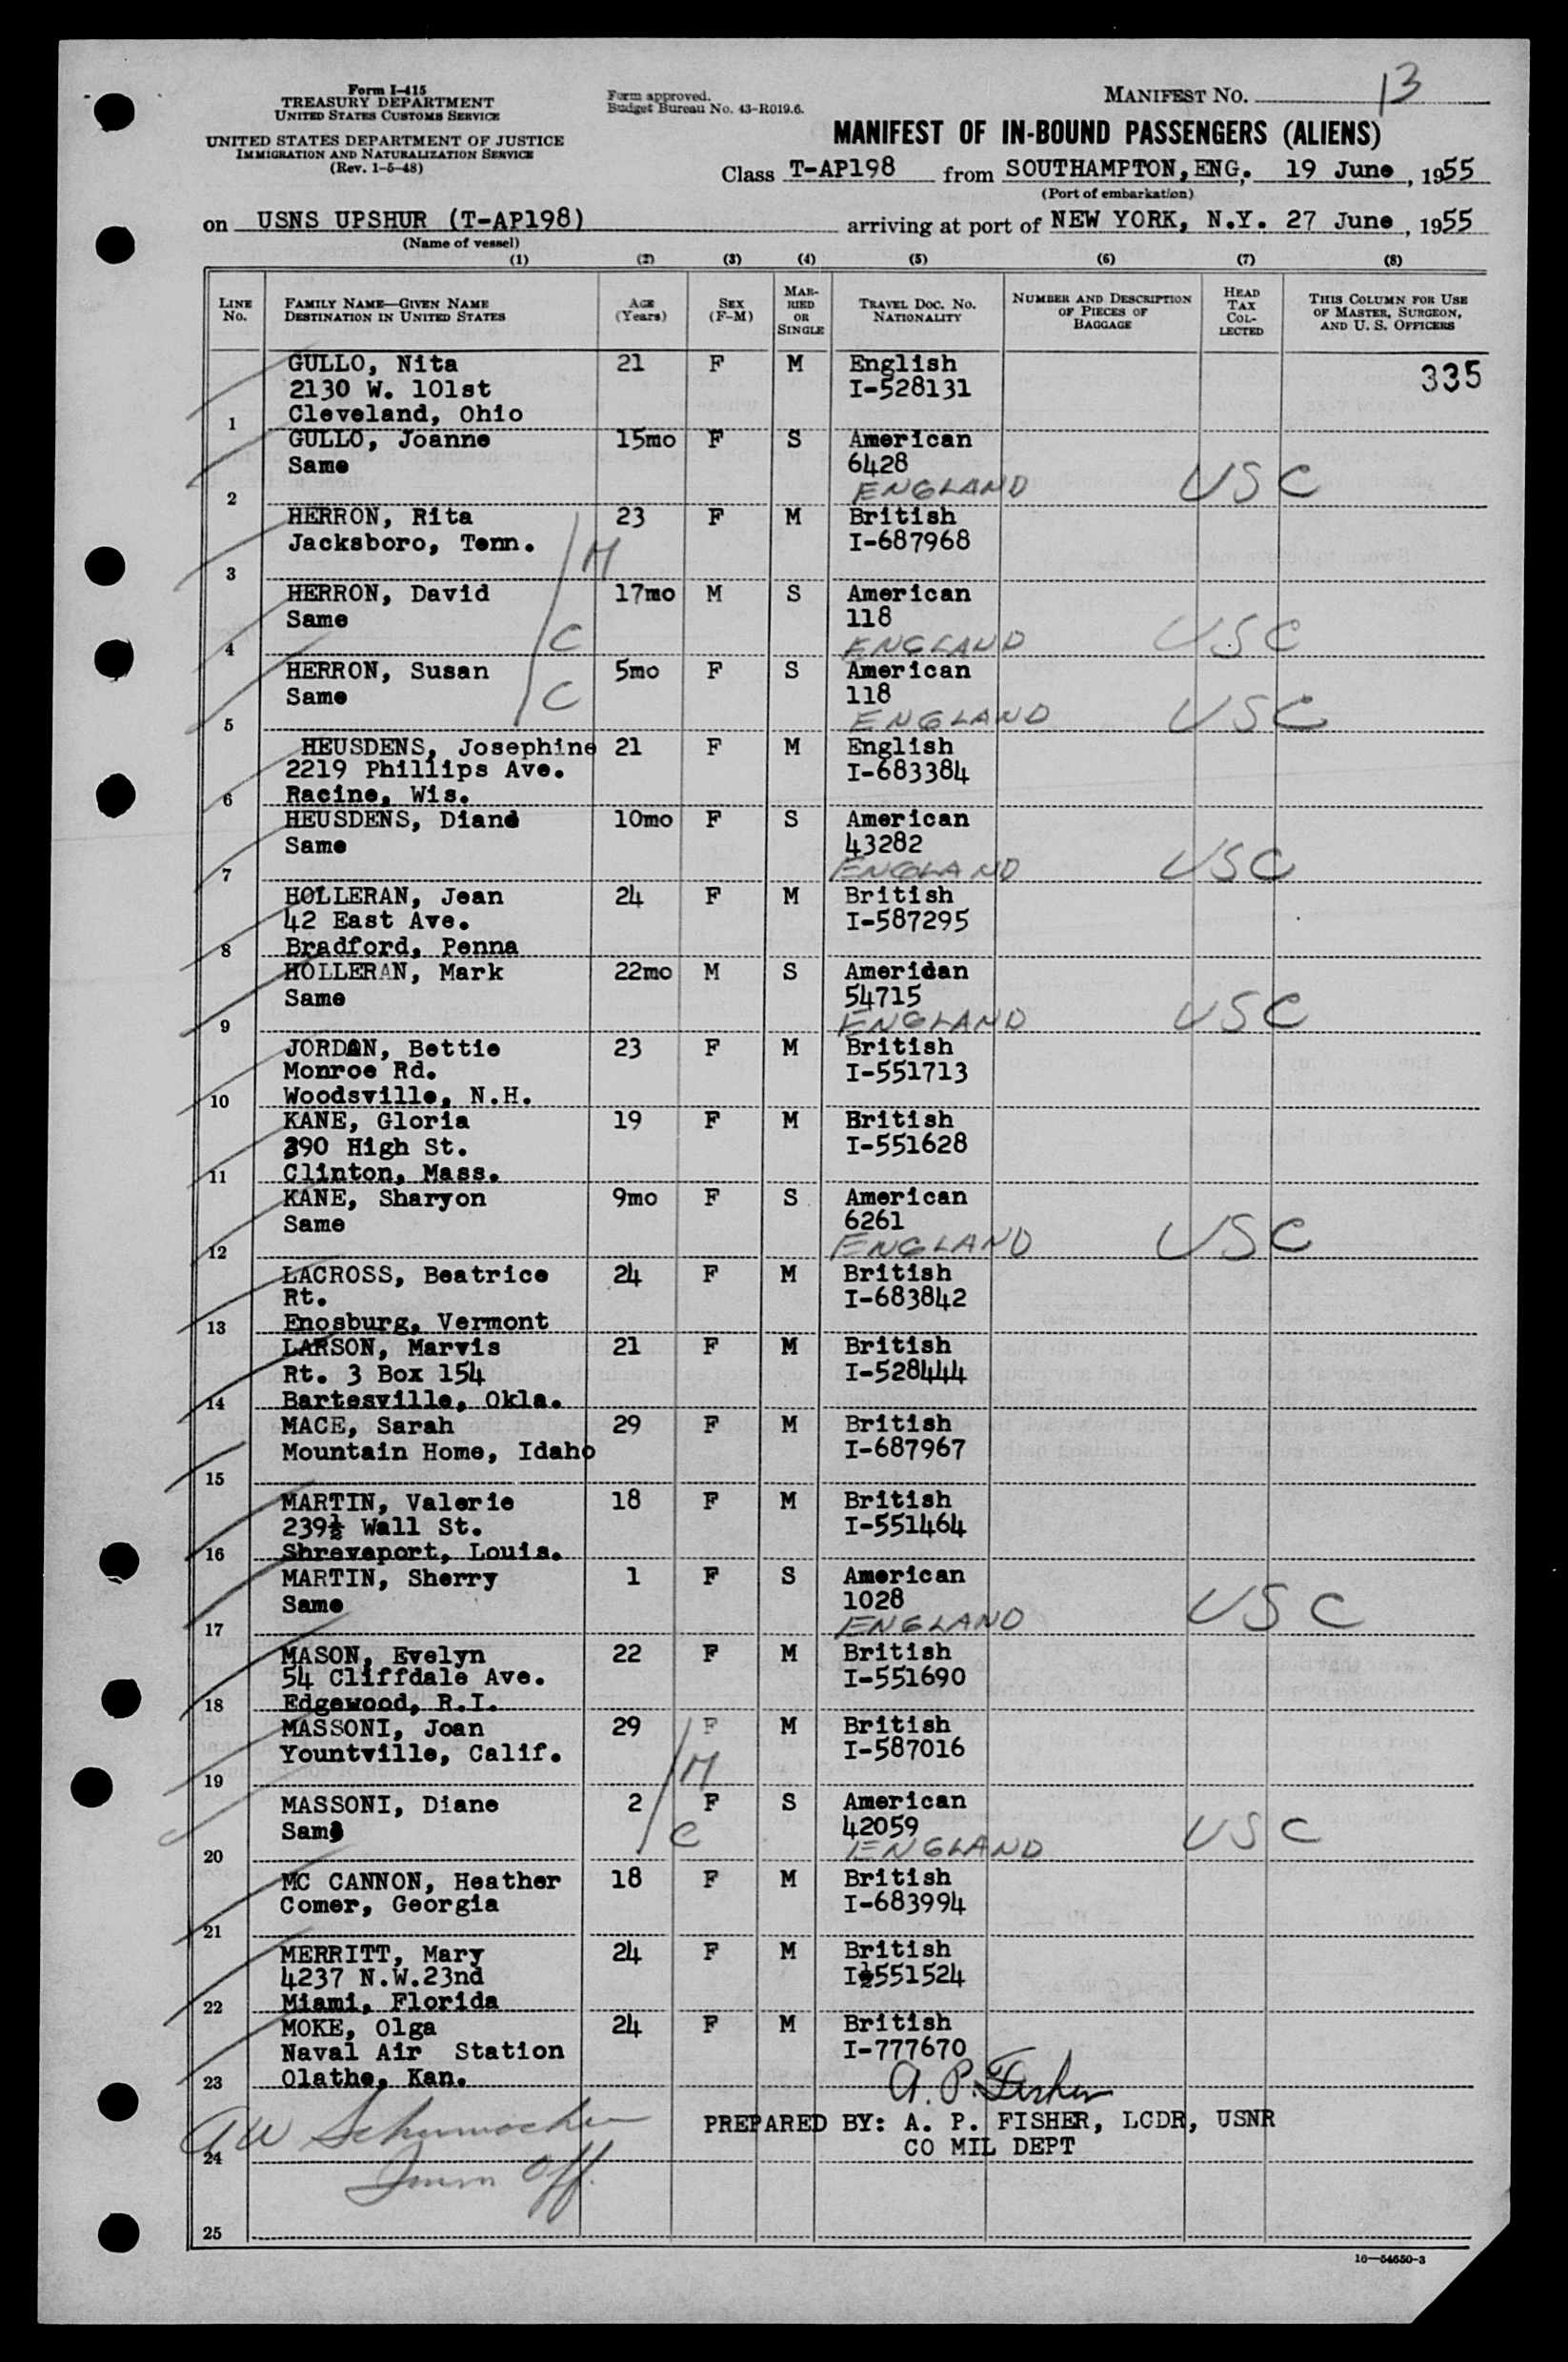 Form I-415
TREASURY DEPARTMENT
UNITED STATES CUSTOMS SERVICE
UNITED STATES DEPARTMENT OF JUSTICE
IMMIGRATION AND NATURALIZATION SERVICE
(Rev. 1-5-48)
Form approved.
Budget Bureau No. 43-R019.6.
MANIFEST NO. 13
MANIFEST OF IN-BOUND PASSENGERS (ALIENS)
Class T-AP198 from SOUTHAMPTON, ENG. 19 June, 1955
(Port of embarkation)
on USNS UPSHUR (T-AP198) arriving at port of NEW YORK, N.Y. 27 June, 1955
(Name of vessel)
(1) (2) (3) (4) (5) (6) (7) (8)
LINE NO.
FAMILY NAME—GIVEN NAME
DESTINATION IN UNITED STATES
AGE (Years)
SEX (F-M)
MARRIED OR SINGLE
TRAVEL DOC. NO. NATIONALITY
NUMBER AND DESCRIPTION OF PIECES OF BAGGAGE
HEAD TAX COLLECTED
THIS COLUMN FOR USE OF MASTER, SURGEON, AND U. S. OFFICERS
GULLO, Nita 21 F M English 335
2130 W. 101st I-528131
1 Cleveland, Ohio
GULLO, Joanne 15mo F S American
Same 6428
2 ENGLAND USC
HERRON, Rita 23 F M British
Jacksboro, Tenn. I-687968
3 M
HERRON, David 17mo M S American
Same 118
4 C ENGLAND USC
HERRON, Susan 5mo F S American
Same C 118
5 ENGLAND USC
HEUSDENS, Josephine 21 F M English
2219 Phillips Ave. I-683384
6 Racine, Wis.
HEUSDENS, Diane 10mo F S American
Same 43282
7 ENGLAND USC
HOLLERAN, Jean 24 F M British
42 East Ave. I-587295
8 Bradford, Penna
HOLLERAN, Mark 22mo M S American
Same 54715
9 ENGLAND USC
JORDAN, Bettie 23 F M British
Monroe Rd. I-551713
10 Woodsville, N.H.
KANE, Gloria 19 F M British
390 High St. I-551628
11 Clinton, Mass.
KANE, Sharyon 9mo F S American
Same 6261
12 ENGLAND USC
LACROSS, Beatrice 24 F M British
Rt. I-683842
13 Enosburg, Vermont
LARSON, Marvis 21 F M British
Rt. 3 Box 154 I-528444
14 Bartesville, Okla.
MACE, Sarah 29 F M British
Mountain Home, Idaho I-687967
15
MARTIN, Valerie 18 F M British
239½ Wall St. I-551464
16 Shreveport, Louis.
MARTIN, Sherry 1 F S American
Same 1028
17 ENGLAND USC
MASON, Evelyn 22 F M British
54 Cliffdale Ave. I-551690
18 Edgewood, R.I.
MASSONI, Joan 29 F M British
Yountville, Calif. I-587016
19 M
MASSONI, Diane 2 F S American
Same C 42059
20 ENGLAND USC
MC CANNON, Heather 18 F M British
Comer, Georgia I-683994
21
MERRITT, Mary 24 F M British
4237 N.W.23nd I½551524
22 Miami, Florida
MOKE, Olga 24 F M British
Naval Air Station I-777670
23 Olathe, Kan. A. P. Fisher
AW Schumacher PREPARED BY: A. P. FISHER, LCDR, USNR
24 CO MIL DEPT
Imm Off.
25
16—54650-3